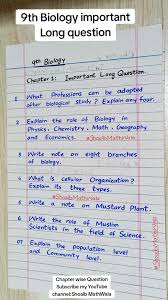 9th Biology important
Long question
9th Biology
Chapter 1: Important Long Question.
1 What Professions can be adapted
after biological study? Explain any four.
#ShoaibMathWala
2 Explain the Role of Biology in
Physics, Chemistry, Math, Geography
and Economics. #ShoaibMathWala
3 Write note on eight branches
of biology.
4 What is cellular Organization?
Explain its three types.
#ShoaibMathWala
5 Write a note on Mustard Plant.
6 Write the role of Muslim
Scientists in the field of Science.
#ShoaibMathWala
07 Explain the population level
and Community level.
Chapter wise Question
Subscribe my YouTube
channel:Shoaib MathWala